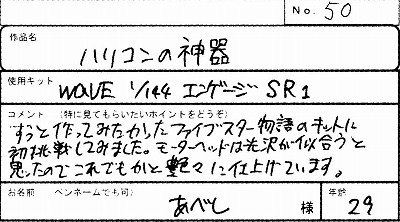 No. 50
作品名
ハリコンの神器
使用キット
WAVE 1/144 エンゲージ SR1
コメント (特に見てもらいたいポイントをどうぞ)
ずっと作ってみたかったファイブスター物語のキットに
初挑戦してみました。モーターヘッドは光沢が似合うと
思ったのでこれでもかと艶々に仕上げています。
お名前 ペンネームでも可)
あべし 様
年齢
29